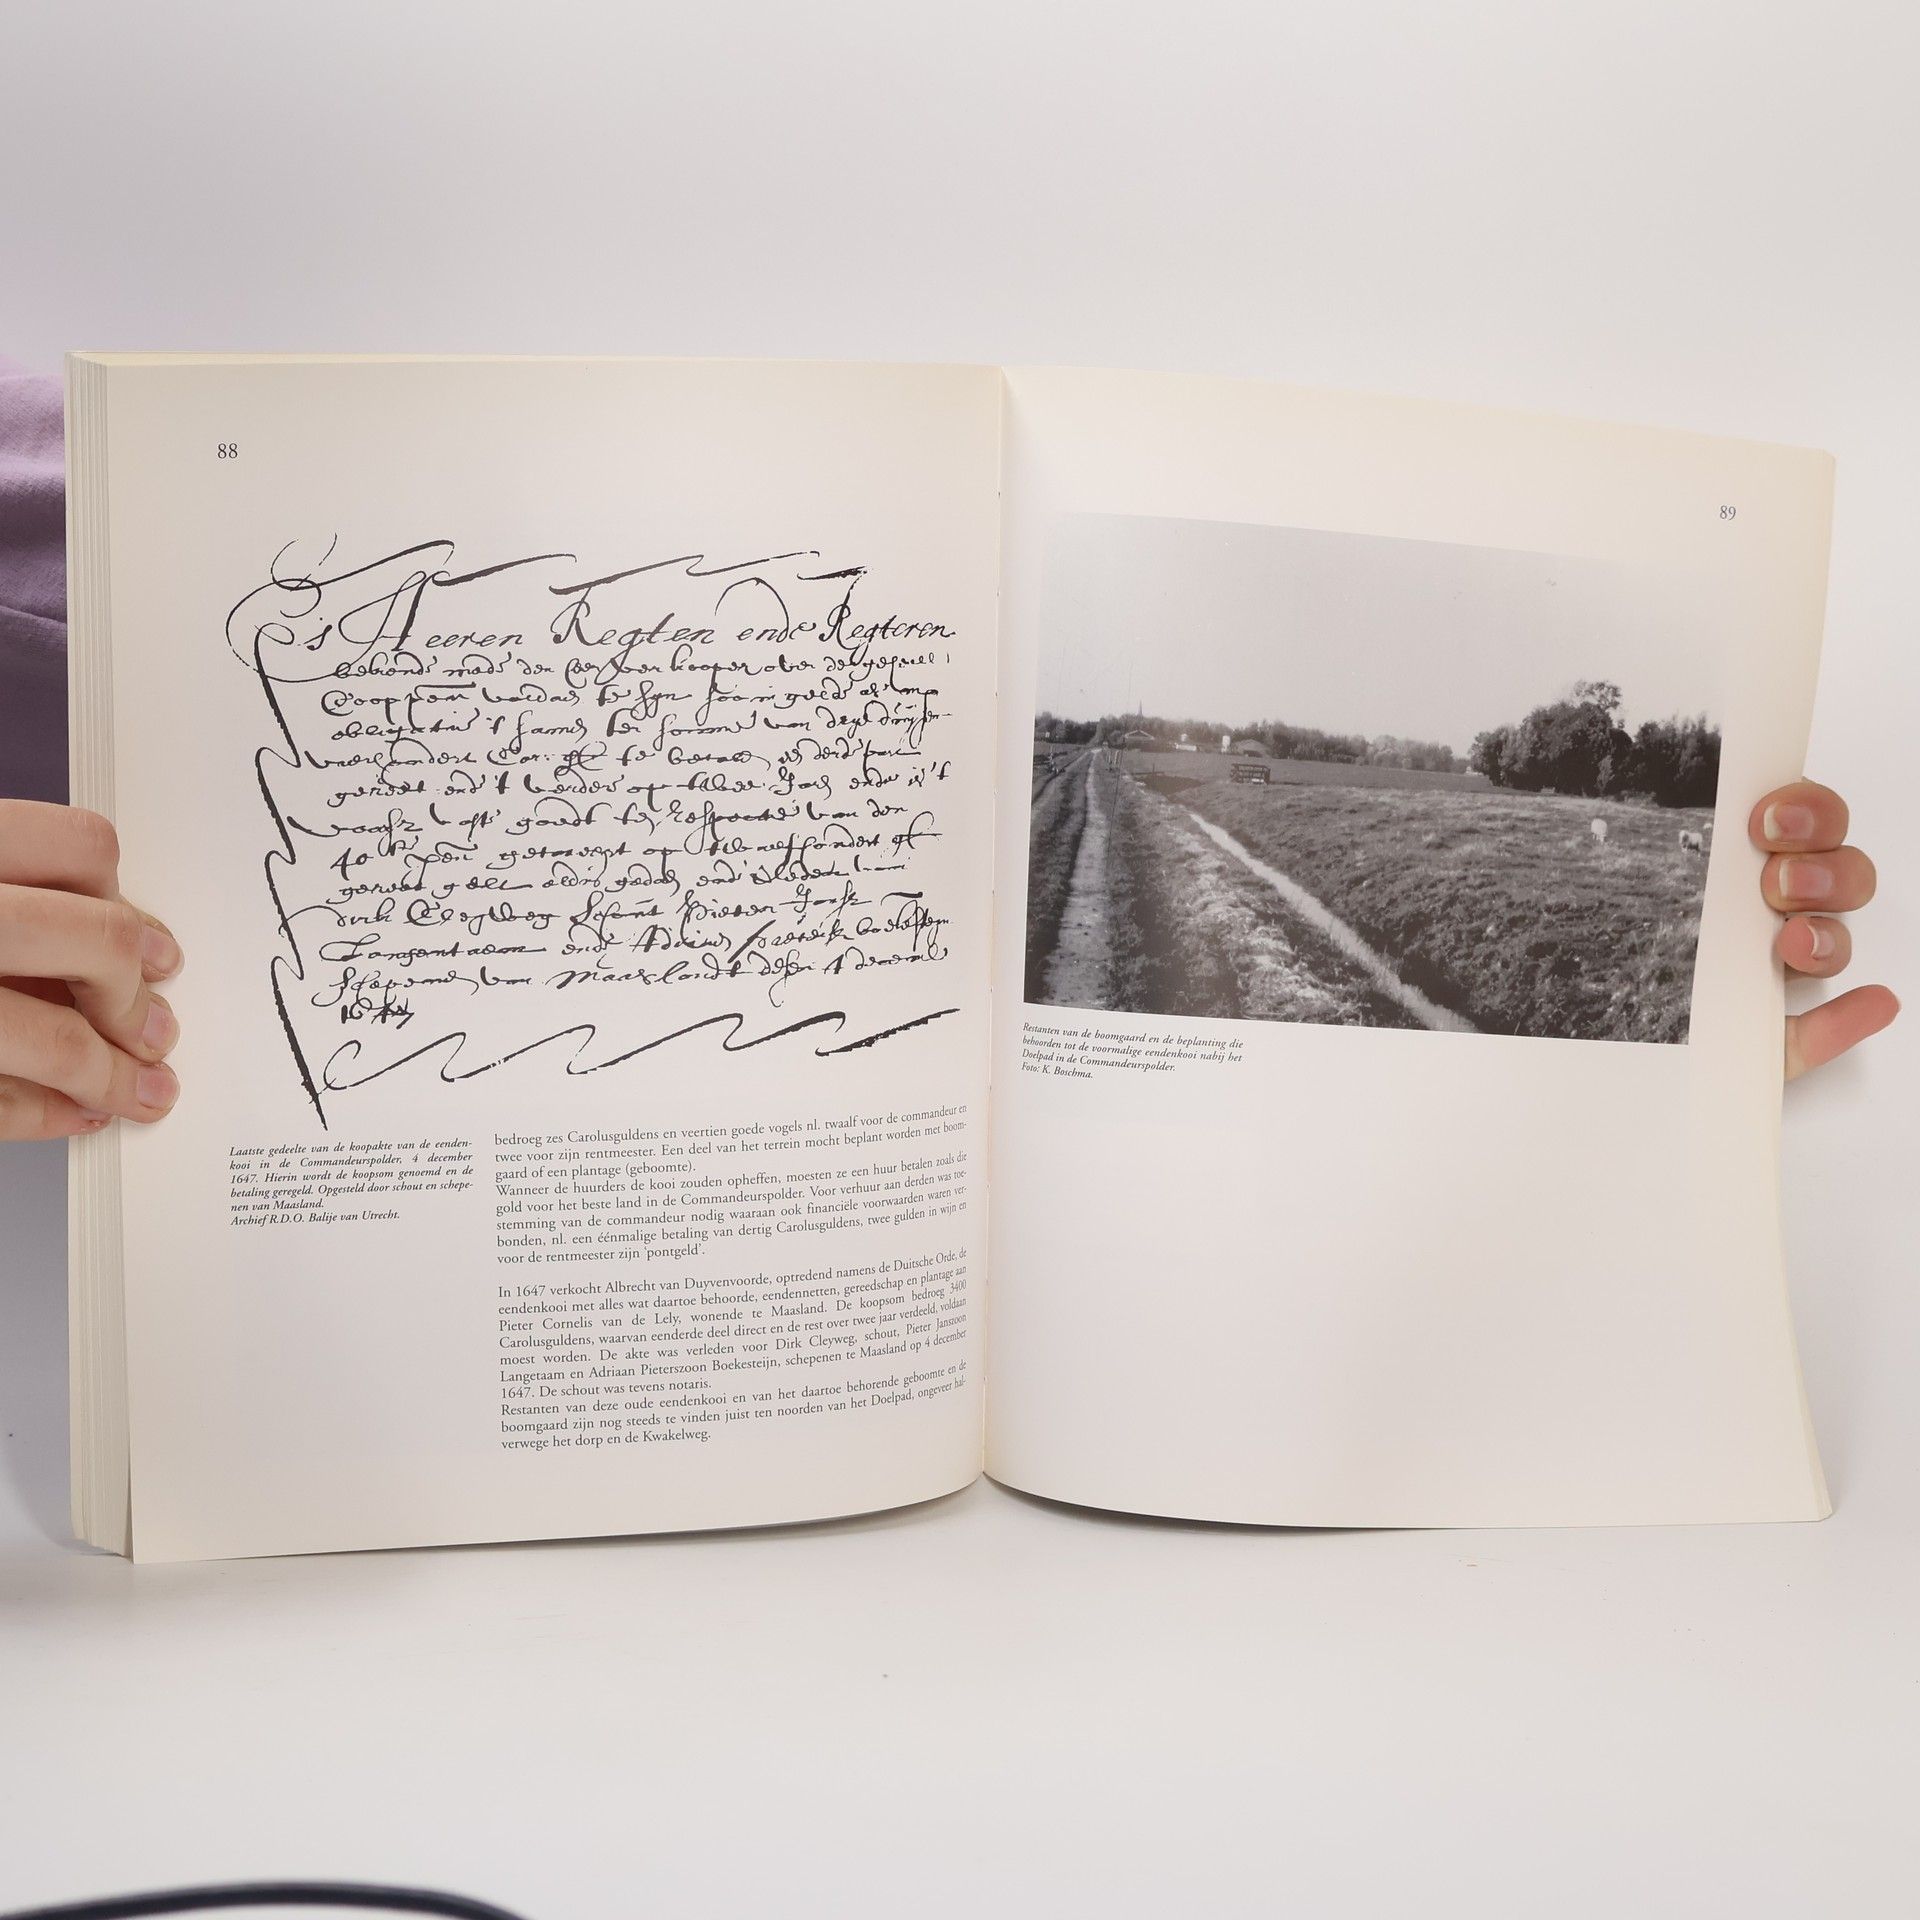 88
s Heeren Regten ende Regteren
vercooper over de
te betalen
gereet ende t verder op twee Jaer ende is t
van den
40
gereet gelt
dirk Cleyweg Schout Pieter Jansz
Langentaem ende
Schepenen van Maeslandt desen 4 decemb
1647
Laatste gedeelte van de koopakte van de eenden-
kooi in de Commandeurspolder, 4 december
1647. Hierin wordt de koopsom genoemd en de
betaling geregeld. Opgesteld door schout en schepe-
nen van Maasland.
Archief R.D.O. Balije van Utrecht.
bedroeg zes Carolusguldens en veertien goede vogels nl. twaalf voor de commandeur en
twee voor zijn rentmeester. Een deel van het terrein mocht beplant worden met boom-
gaard of een plantage (geboomte).
Wanneer de huurders de kooi zouden opheffen, moesten ze een huur betalen zoals die
gold voor het beste land in de Commandeurspolder. Voor verhuur aan derden was toe-
stemming van de commandeur nodig waaraan ook financiële voorwaarden waren ver-
bonden, nl. een éénmalige betaling van dertig Carolusguldens, twee gulden in wijn en
voor de rentmeester zijn ‘pontgeld’.
In 1647 verkocht Albrecht van Duyvenvoorde, optredend namens de Duitsche Orde, de
eendenkooi met alles wat daartoe behoorde, eendennetten, gereedschap en plantage aan
Pieter Cornelis van de Lely, wonende te Maasland. De koopsom bedroeg 3400
Carolusguldens, waarvan eenderde deel direct en de rest over twee jaar verdeeld, voldaan
moest worden. De akte was verleden voor Dirk Cleyweg, schout, Pieter Janszoon
Langetaam en Adriaan Pieterszoon Boekesteijn, schepenen te Maasland op 4 december
1647. De schout was tevens notaris.
Restanten van deze oude eendenkooi en van het daartoe behorende geboomte en de
boomgaard zijn nog steeds te vinden juist ten noorden van het Doelpad, ongeveer hal-
verwege het dorp en de Kwakelweg.
89
Restanten van de boomgaard en de beplanting die
behoorden tot de voormalige eendenkooi nabij het
Doelpad in de Commandeurspolder.
Foto: K. Boschma.